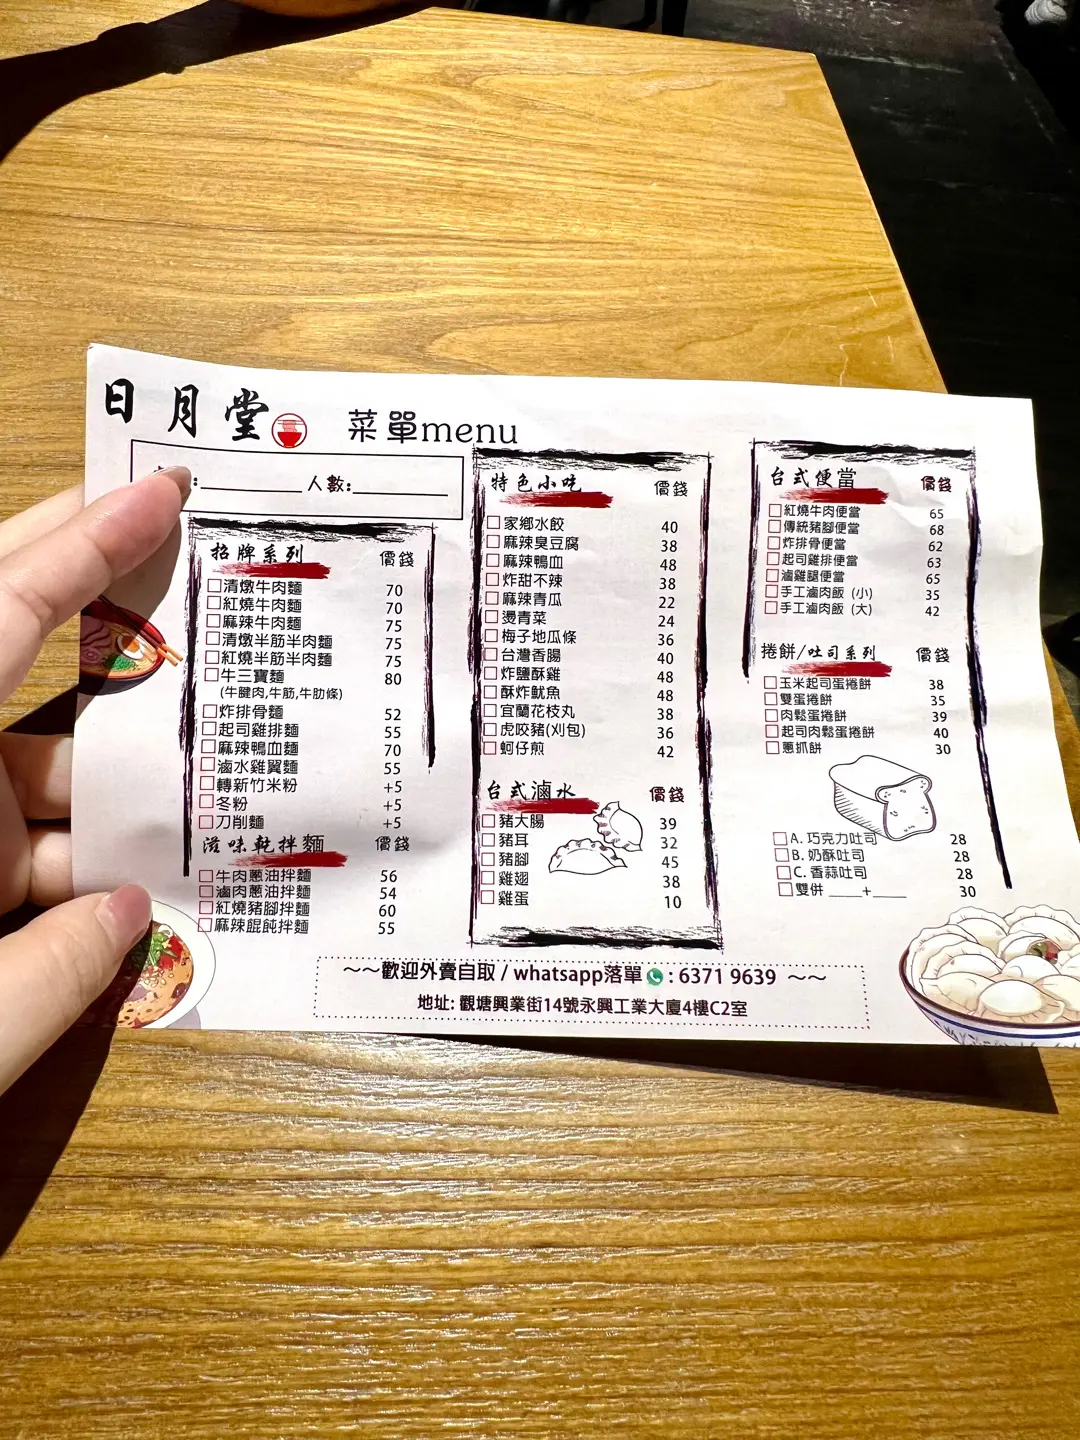 日月堂 菜單menu
: ________ 人數: ________
招牌系列 價錢
清燉牛肉麵 70
紅燒牛肉麵 70
麻辣牛肉麵 75
清燉半筋半肉麵 75
紅燒半筋半肉麵 75
牛三寶麵 80
(牛腱肉,牛筋,牛肋條)
炸排骨麵 52
起司雞排麵 55
麻辣鴨血麵 70
滷水雞翼麵 55
轉新竹米粉 +5
冬粉 +5
刀削麵 +5
滋味乾拌麵 價錢
牛肉蔥油拌麵 56
滷肉蔥油拌麵 54
紅燒豬腳拌麵 60
麻辣餛飩拌麵 55
特色小吃 價錢
家鄉水餃 40
麻辣臭豆腐 38
麻辣鴨血 48
炸甜不辣 38
麻辣青瓜 22
燙青菜 24
梅子地瓜條 36
台灣香腸 40
炸鹽酥雞 48
酥炸魷魚 48
宜蘭花枝丸 38
虎咬豬(刈包) 36
蚵仔煎 42
台式滷水 價錢
豬大腸 39
豬耳 32
豬腳 45
雞翅 38
雞蛋 10
台式便當 價錢
紅燒牛肉便當 65
傳統豬腳便當 68
炸排骨便當 62
起司雞排便當 63
滷雞腿便當 65
手工滷肉飯 (小) 35
手工滷肉飯 (大) 42
捲餅/吐司系列 價錢
玉米起司蛋捲餅 38
雙蛋捲餅 35
肉鬆蛋捲餅 39
起司肉鬆蛋捲餅 40
蔥抓餅 30
A. 巧克力吐司 28
B. 奶酥吐司 28
C. 香蒜吐司 28
雙併 ____+____ 30
~~歡迎外賣自取 / whatsapp落單 : 6371 9639 ~~
地址: 觀塘興業街14號永興工業大廈4樓C2室